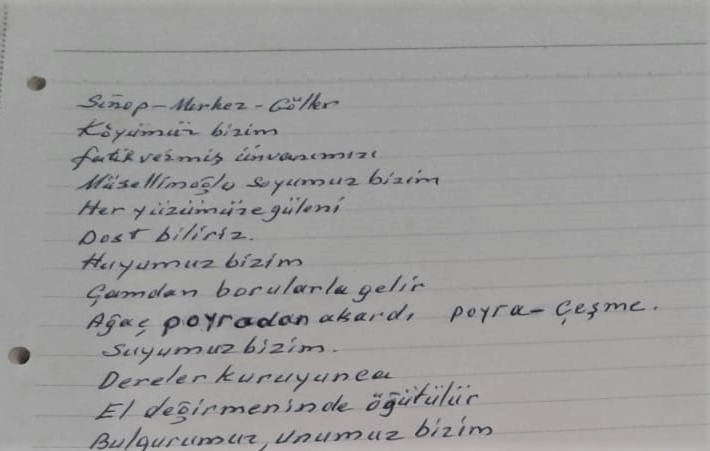 Sinop-Merkez-Göller
Köyümüz bizim
fatih vermiş ünvanımızı
Müsellimoğlu Soyumuz bizim
Her yüzümüze güleni
Dost biliriz.
Huyumuz bizim
Çamdan borularla gelir
Ağaç poyradan akardı poyra-Çeşme.
Suyumuz bizim.
Dereler kuruyunca
El değirmeninde öğütülür
Bulgurumuz, unumuz bizim